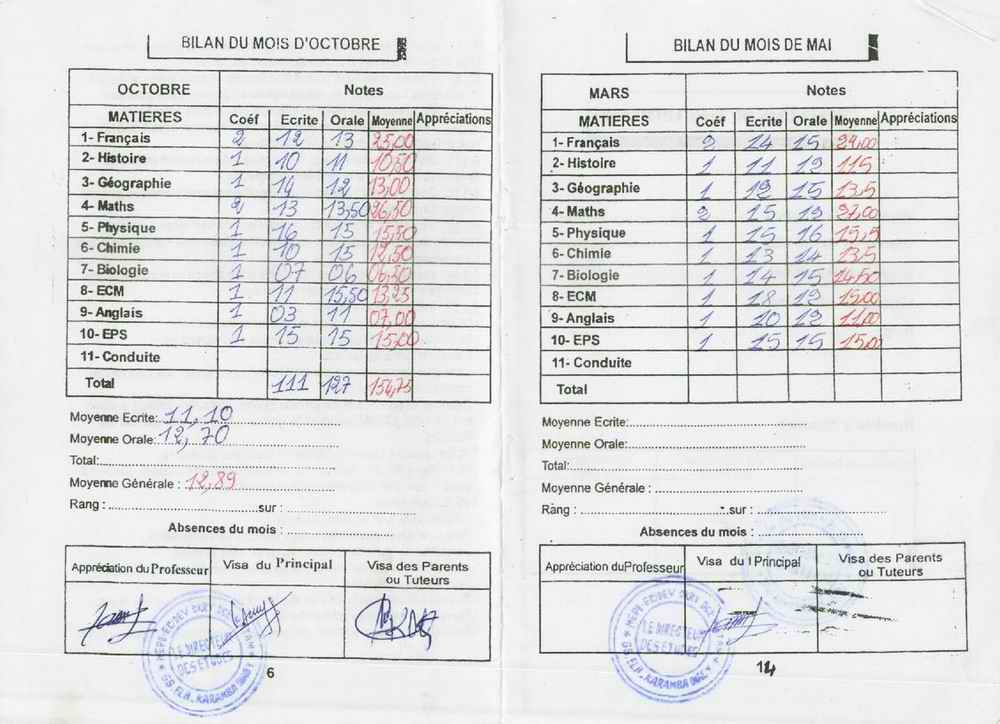 BILAN DU MOIS D'OCTOBRE
OCTOBRE Notes
MATIERES Coéf Ecrite Orale Moyenne Appréciations
1- Français 2 12 13 25,00
2- Histoire 1 10 11 10,50
3- Géographie 1 14 12 13,00
4- Maths 2 13 13,50 26,50
5- Physique 1 16 15 15,50
6- Chimie 1 10 15 12,50
7- Biologie 1 07 06 06,50
8- ECM 1 11 15,50 13,25
9- Anglais 1 03 11 07,00
10- EPS 1 15 15 15,00
11- Conduite
Total 111 127 154,75
Moyenne Ecrite: 11,10
Moyenne Orale: 12,70
Total:
Moyenne Générale : 12,89
Rang : sur :
Absences du mois :
Appréciation du Professeur Visa du Principal Visa des Parents ou Tuteurs
LE DIRECTEUR
DES ETUDES
6
BILAN DU MOIS DE MAI
MARS Notes
MATIERES Coéf Ecrite Orale Moyenne Appréciations
1- Français 2 14 15 29,00
2- Histoire 1 11 12 115
3- Géographie 1 12 15 13,5
4- Maths 2 15 12 27,00
5- Physique 1 15 16 15,5
6- Chimie 1 13 14 13,5
7- Biologie 1 14 15 14,50
8- ECM 1 18 12 15,00
9- Anglais 1 10 12 11,00
10- EPS 1 15 15 15,00
11- Conduite
Total
Moyenne Ecrite:
Moyenne Orale:
Total:
Moyenne Générale :
Rang : sur :
Absences du mois :
Appréciation du Professeur Visa du Principal Visa des Parents ou Tuteurs
LE DIRECTEUR
DES ETUDES
14